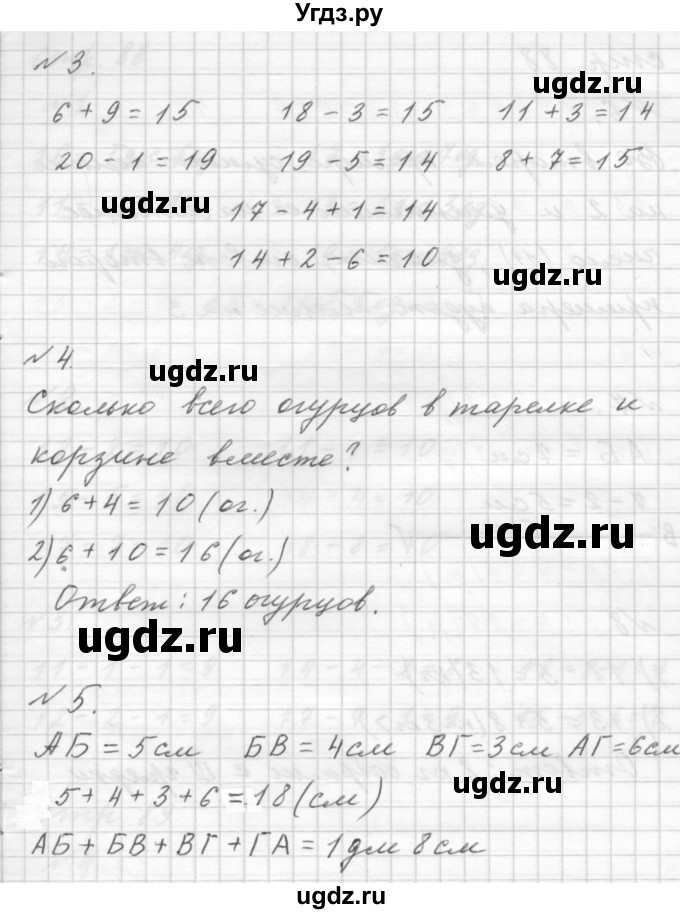 Угдз.ру
№3.
ugdz.ru
6+9=15 18-3=15 11+3=14
20-1=19 19-5=14 8+7=15
ugdz.ru
17-4+1=14
14+2-6=10
ugdz.ru
№4.
ugdz.ru
Сколько всего огурцов в тарелке и
корзине вместе?
1) 6+4=10 (ог.)
ugdz.ru
2) 6+10=16 (ог.)
Ответ: 16 огурцов.
ugdz.ru
№5.
ugdz.ru
АБ=5см БВ=4см ВГ=3см АГ=6см
5+4+3+6=18 (см)
ugdz.ru
АБ+БВ+ВГ+ГА=1дм 8см
ugdz.ru